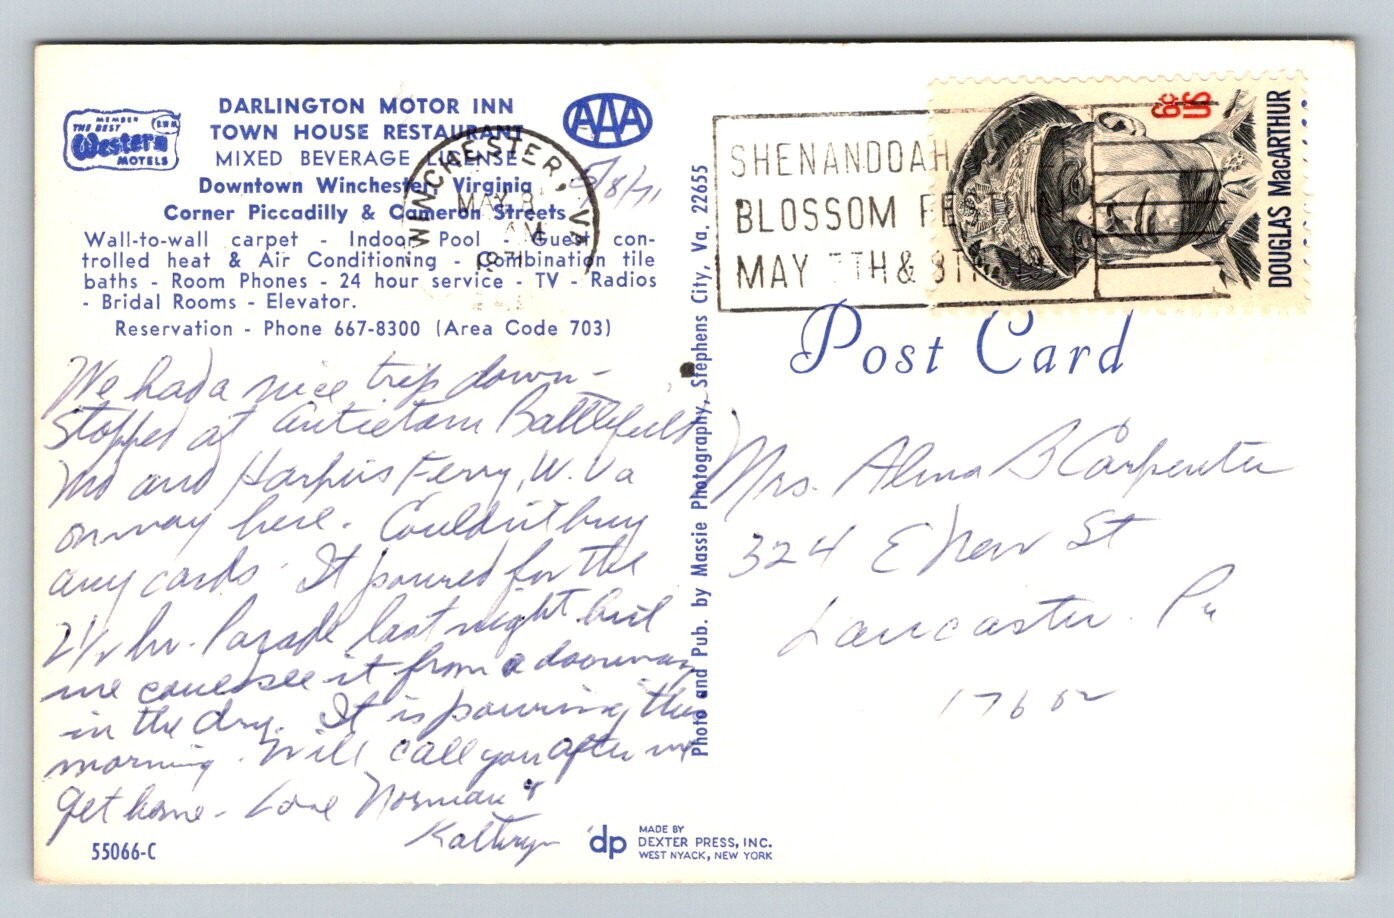 MEMBER
THE BEST
Western
MOTELS
DARLINGTON MOTOR INN
TOWN HOUSE RESTAURANT
MIXED BEVERAGE LICENSE
Downtown Winchester, Virginia
Corner Piccadilly & Cameron Streets
Wall-to-wall carpet - Indoor Pool - Guest con-
trolled heat & Air Conditioning - Combination tile
baths - Room Phones - 24 hour service - TV - Radios
- Bridal Rooms - Elevator.
Reservation - Phone 667-8300 (Area Code 703)
AAA
5/8/71
WINCHESTER, VA
MAY 8
AM
1971
We had a nice trip down -
Stopped at Antietam Battlefield
Md and Harpers Ferry, W. Va
on way here. Couldn't buy
any cards. It poured for the
2½ hr. Parade last night but
we could see it from a doorway
in the dry. It is pouring this
morning. Will call you after we
get home - Love Norman &
Kathryn
55066-C
Photo and Pub. by Massie Photography, Stephens City, Va. 22655
dp
MADE BY
DEXTER PRESS, INC.
WEST NYACK, NEW YORK
SHENANDOAH
BLOSSOM FE
MAY 7TH & 8TH
6c
US
DOUGLAS MacARTHUR
Post Card
Mrs. Alma B Carpenter
324 E New St
Lancaster. Pa
17602